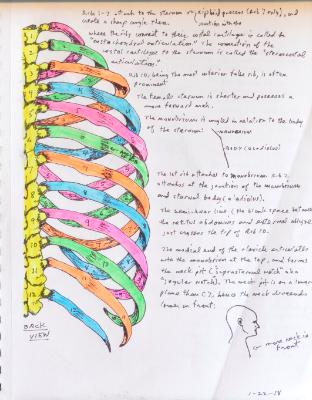 Ribs 1-7 attach to the sternum or xiphoid process (Rib 7 only), and
create a sharp angle there.
junction with the
where the rib connects to their costal cartilages is called the
"costochondral articulation." The connection of the
costal cartilage to the sternum is called the "sternocostal
articulation."
Rib 10, being the most inferior false rib, is often
prominent
The female sternum is shorter and possesses a
more forward arch.
The manubrium is angled in relation to the body
of the sternum:
MANUBRIUM
BODY (GLADIOLUS)
The 1st rib attaches to manubrium. Rib 2
attaches at the junction of the manubrium
and sternal body (gladiolus).
The semi-lunar line (the blank space between
the rectus abdominus and external oblique
just crosses the tip of Rib 10.
The medial end of the clavicle articulates
with the manubrium at the top, and forms
the neck pit ("suprasternal notch" aka
"jugular notch). The neck pit is on a lower
plane than C7, hence the neck descends
lower in front:
← more neck in
front
1
2
3
4
5
6
7
8
9
10
11
12
BACK
VIEW
1-22-18